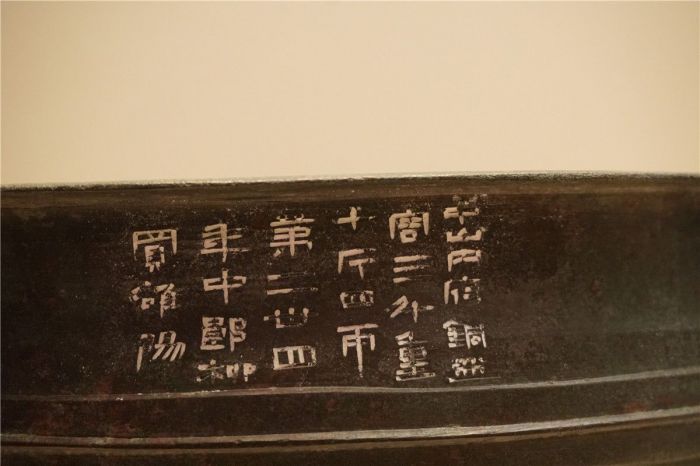 中山内府銅盆
容三斗重
七斤四兩
第二卅四
年中郎柳
買雒陽